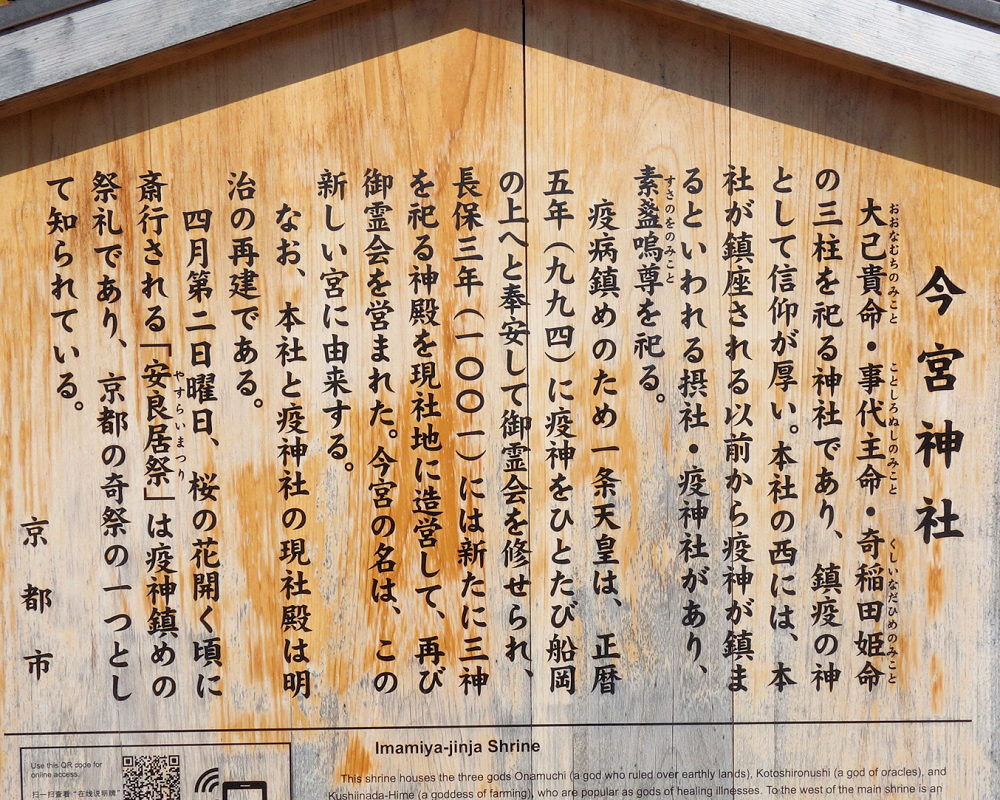 今宮神社
大己貴命・事代主命・奇稲田姫命
おおなむちのみこと
ことしろぬしのみこと
くしいなだひめのみこと
の三柱を祀る神社であり、鎮疫の神
として信仰が厚い。本社の西には、本
社が鎮座される以前から疫神が鎮ま
るといわれる摂社・疫神社があり、
素盞嗚尊を祀る。
すさのをのみこと
疫病鎮めのため一条天皇は、正暦
五年(九九四)に疫神をひとたび船岡
の上へと奉安して御霊会を修せられ、
長保三年(一〇〇一)には新たに三神
を祀る神殿を現社地に造営して、再び
御霊会を営まれた。今宮の名は、この
新しい宮に由来する。
なお、本社と疫神社の現社殿は明
治の再建である。
四月第二日曜日、桜の花開く頃に
斎行される「安良居祭」は疫神鎮めの
やすらいまつり
祭礼であり、京都の奇祭の一つとし
て知られている。
京都市
Imamiya-jinja Shrine
This shrine houses the three gods Onamuchi (a god who ruled over earthly lands), Kotoshironushi (a god of oracles), and
Kushiinada-Hime (a goddess of farming), who are popular as gods of healing illnesses. To the west of the main shrine is an
Use this QR code for
online access.
扫一扫查看"在线说明牌"